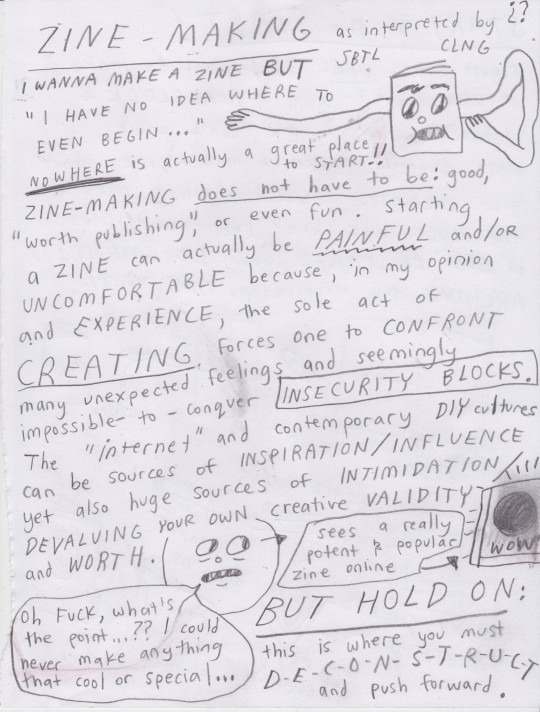 ZINE-MAKING as interpreted by ¿?
SBTL CLNG
I WANNA MAKE A ZINE BUT
"I HAVE NO IDEA WHERE TO
EVEN BEGIN..."
NOWHERE is actually a great place
to START!!
ZINE-MAKING does not have to be: good,
"worth publishing", or even fun. Starting
a ZINE can actually be PAINFUL and/OR
UNCOMFORTABLE because, in my opinion
and EXPERIENCE, the sole act of
CREATING forces one to CONFRONT
many unexpected feelings and seemingly
impossible-to-conquer INSECURITY BLOCKS.
The "internet" and contemporary DIY cultures
can be sources of INSPIRATION/INFLUENCE
yet also huge sources of INTIMIDATION/
DEVALUING YOUR OWN creative VALIDITY
and WORTH.
sees a really
potent & popular
zine online
WOW
Oh FUCK, what's
the point...?? I could
never make anything
that cool or special...
BUT HOLD ON:
this is where you must
D-E-C-O-N-S-T-R-U-C-T
and push forward.